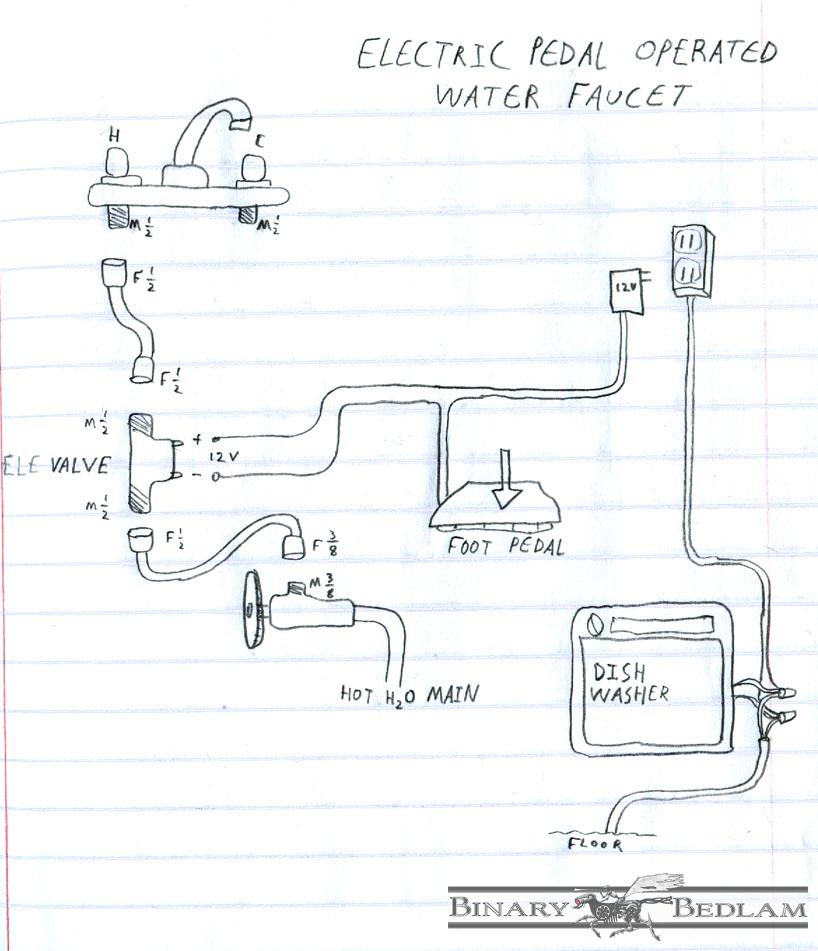 ELECTRIC PEDAL OPERATED
WATER FAUCET
H
C
M 1/2
M 1/2
F 1/2
F 1/2
12V
M 1/2
+
12V
-
ELE VALVE
M 1/2
F 1/2
F 3/8
FOOT PEDAL
M 3/8
HOT H2O MAIN
DISH
WASHER
FLOOR
BINARY BEDLAM